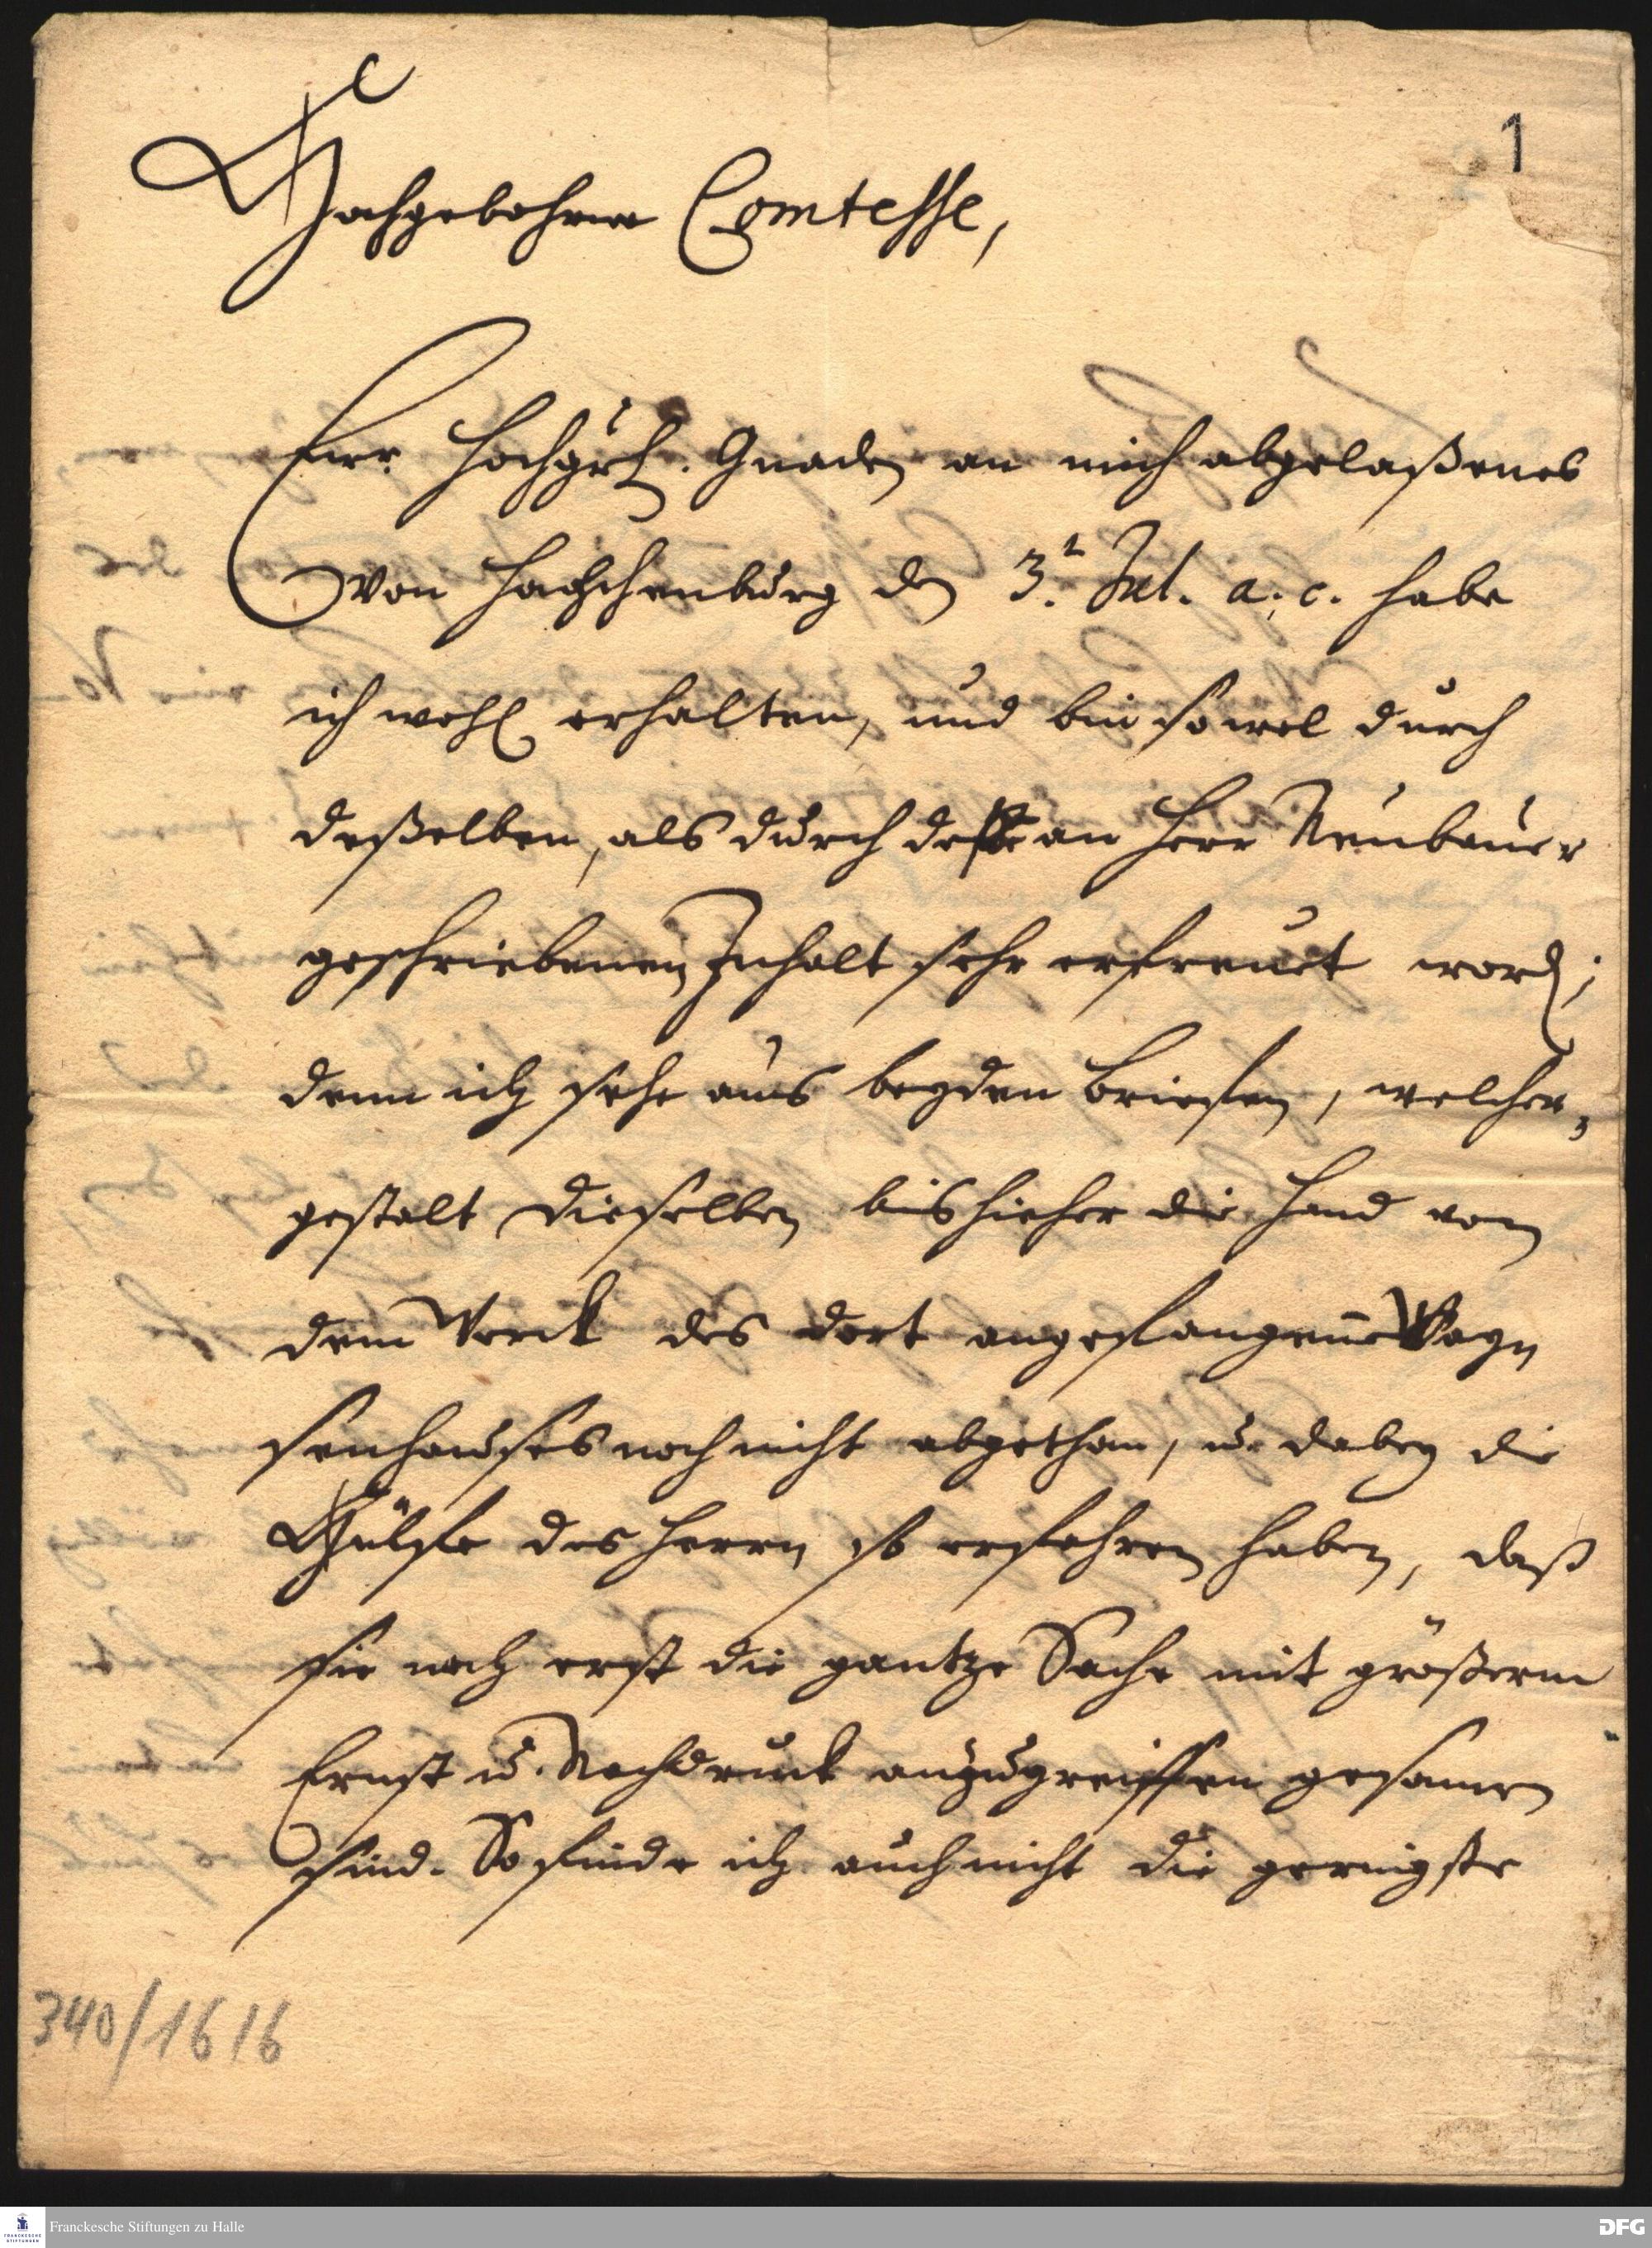 1
Hochgebohrne Comtesse,
Eurr Hochgrfl. Gnaden an mich abgelaßenes
von Hachenburg den 3.t Jul. a. c. habe
ich wohl erhalten, und bin sowol durch
deßelben, als durch deß an Herr Neubauer
geschriebenen Inhalt sehr erfreuet word;
denn ich sehe aus beyden briefen, welcher
gestalt dieselben bishieher die Hand von
dem Werck des dort angefangenen Wayn
senhauses noch nicht abgethan, u. dabey die
Hülfe des Herrn so erfahren haben, daß
sie noch erst die gantze Sache mit größerm
Ernst u. Nachdruck anzugreiffen gesonnen
sind. So finde ich auch nicht die geringste
340/1616
Franckesche Stiftungen zu Halle
DFG